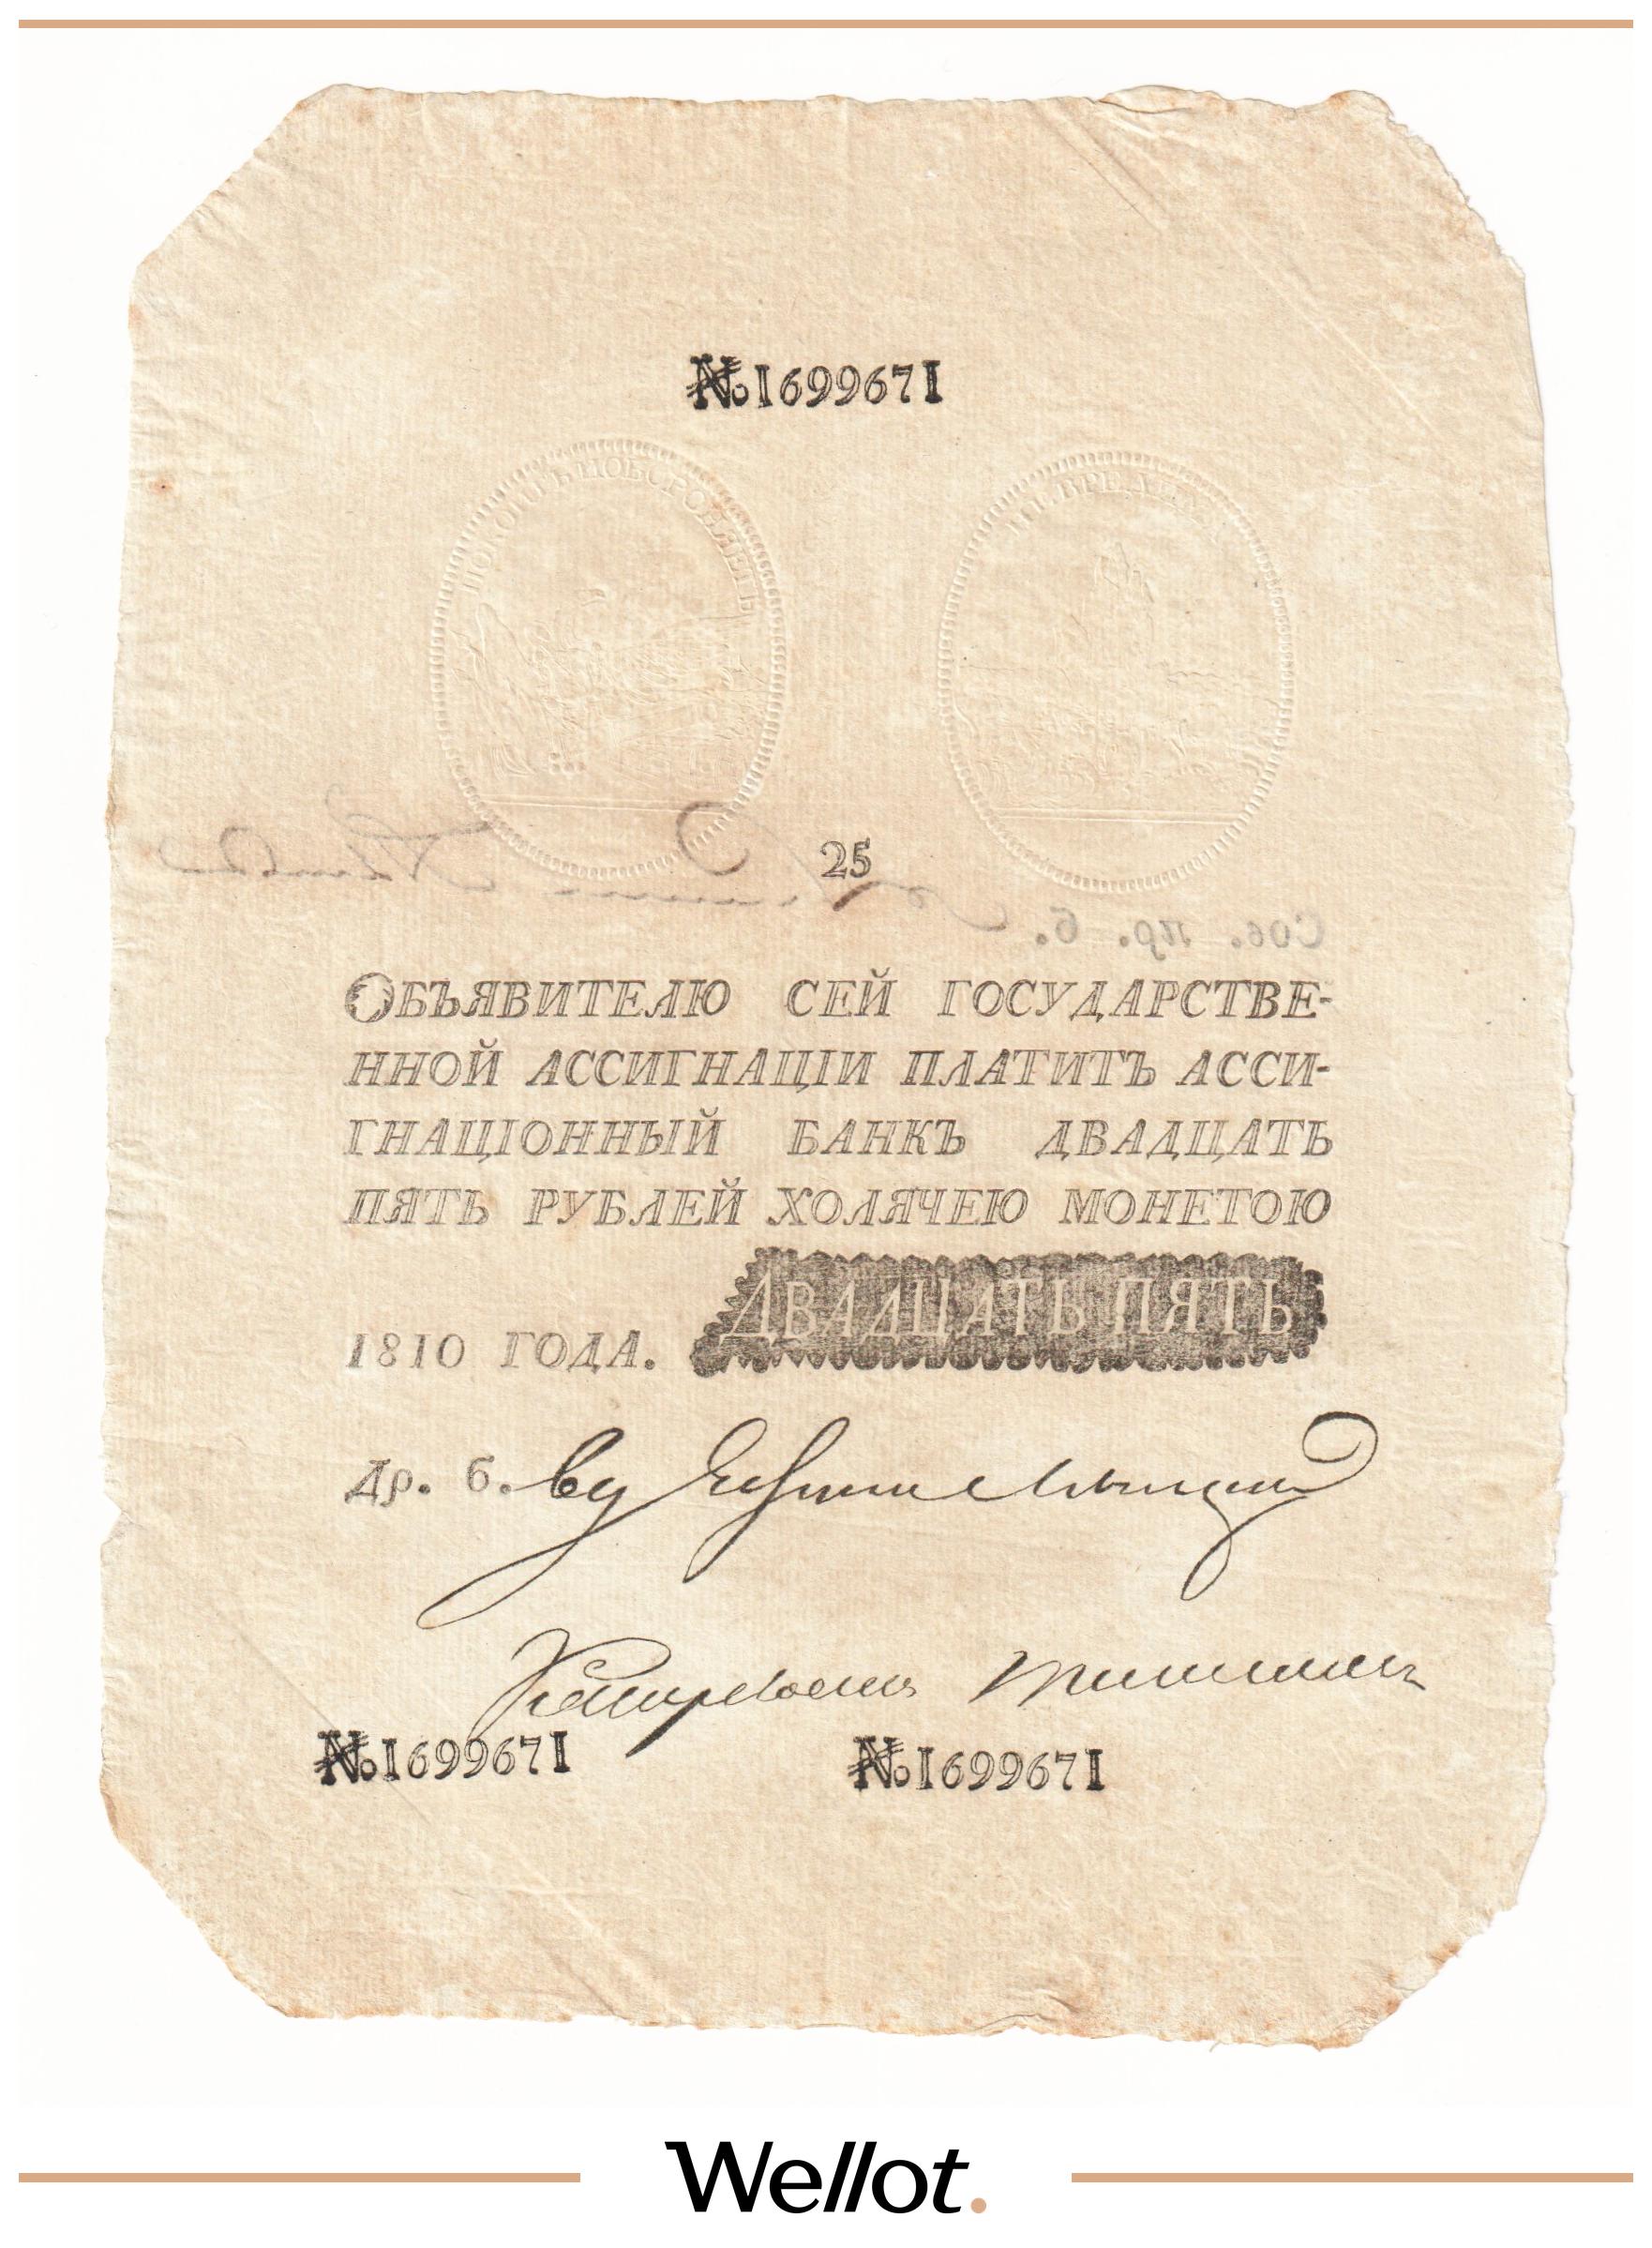 №1699671
ПОКОИТЪ И ОБОРОНЯЕТЪ
НЕВРЕДИМА
25
Сов. пр. б.
ОБЪЯВИТЕЛЮ СЕЙ ГОСУДАРСТВЕ-
ННОЙ АССИГНАЦІИ ПЛАТИТЪ АССИ-
ГНАЦІОННЫЙ БАНКЪ ДВАДЦАТЬ
ПЯТЬ РУБЛЕЙ ХОЛЯЧЕЮ МОНЕТОЮ
1810 ГОДА. ДВАДЦАТЬ ПЯТЬ
Др. б.
№1699671 №1699671
Wellot.